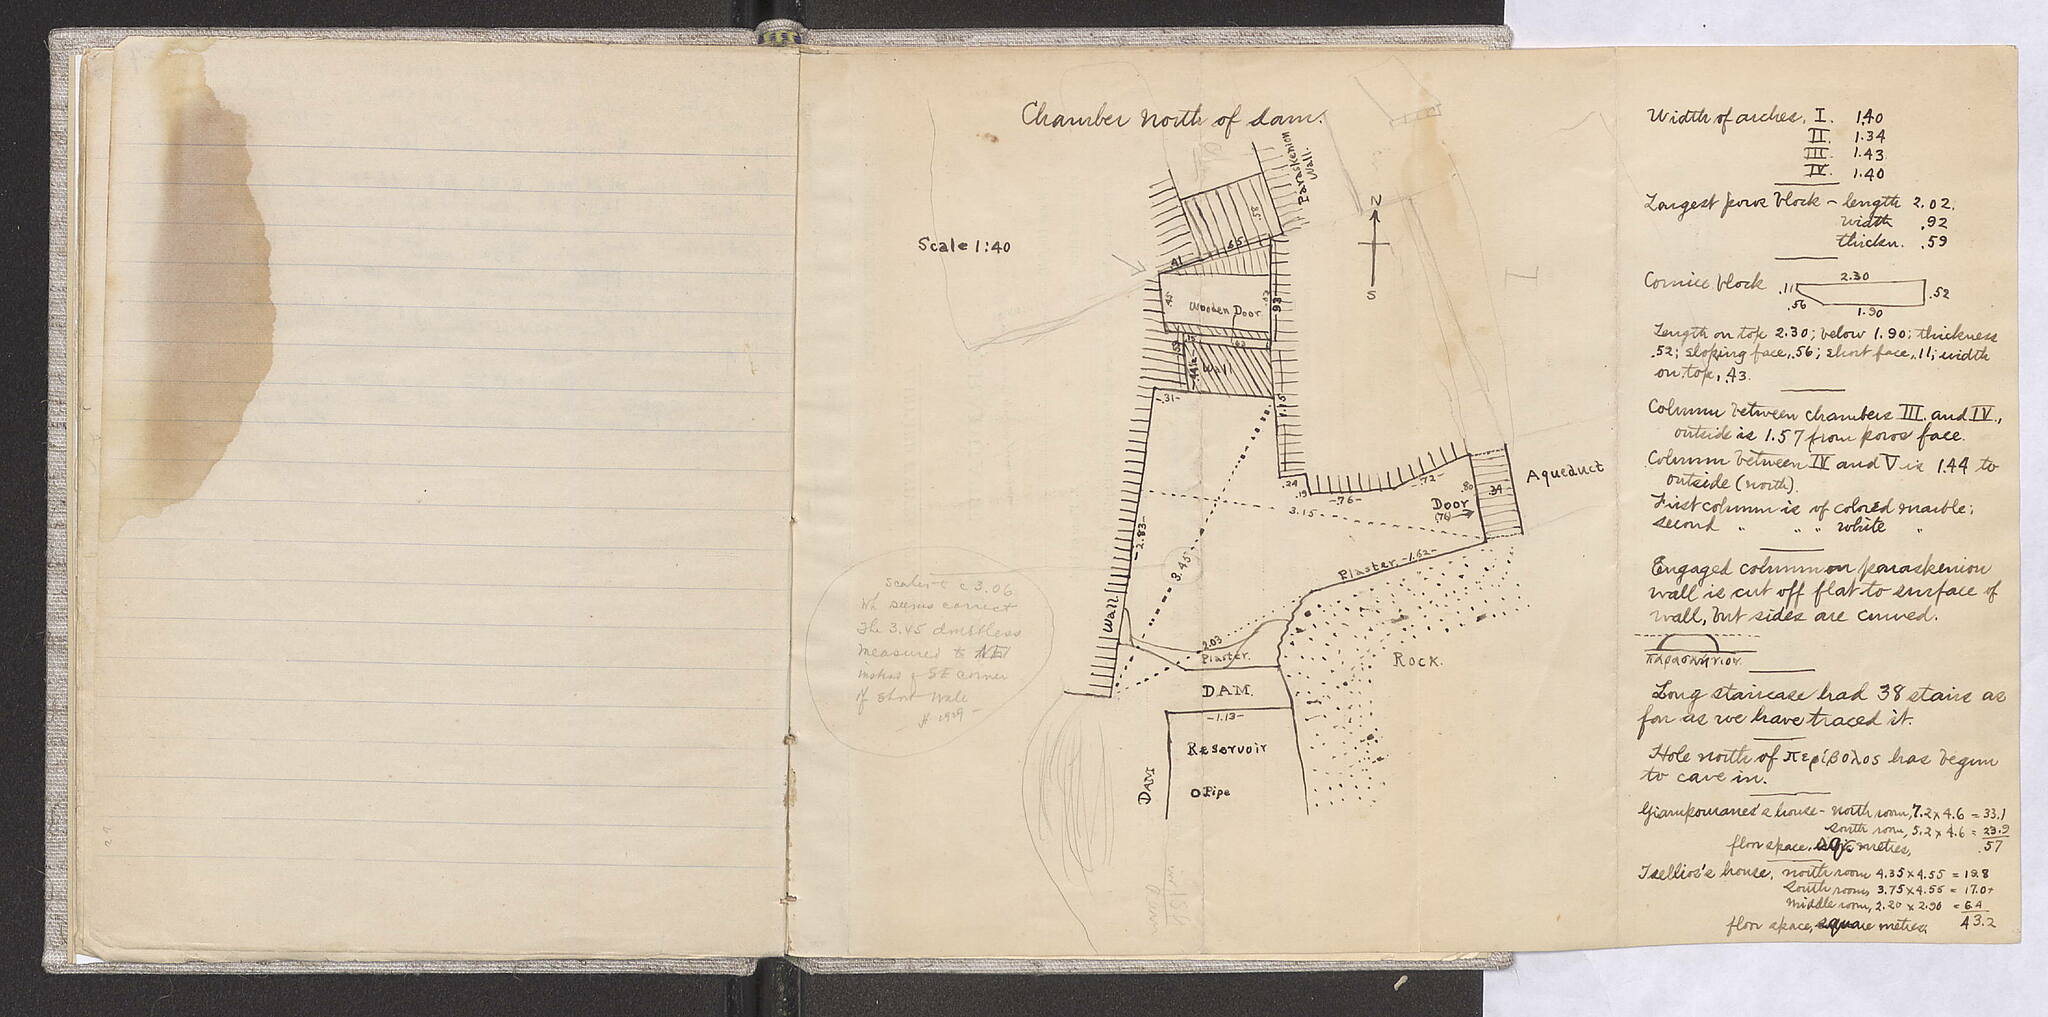 Chamber north of dam.
Paraskenion
Wall.
.58
Scale 1:40
.65
.41
N
S
.45
Wooden Door
.63
.93
.63
Wall
.44½
-.31-
1.15
.24
.19
-.76-
-.72-
.80
.34
Aqueduct
Door
(.76)
3.15
-2.83-
3.45
Plaster -1.62-
Wall
2.03
Plaster.
Rock.
DAM.
-1.13-
Reservoir
DAM
Pipe
scales - c 3.06
Wh seems correct
The 3.45 doubtless
measured to
instead of SE corner
of short wall
Width of arches, I. 1.40
II. 1.34
III. 1.43
IV. 1.40
Largest poros block - length 2.02.
width .92
thickn. .59
Cornice block
2.30
.11
.52
.56
1.90
Length on top 2.30; below 1.90; thickness
.52; sloping face, .56; short face, .11; width
on top, .43.
Column between chambers III. and IV.,
outside is 1.57 from poros face.
Column between IV and V is 1.44 to
outside (north).
First column is of colored marble;
second " " " white "
Engaged column on paraskenion
wall is cut off flat to surface of
wall, but sides are curved.
παρασκήνιον
Long staircase had 38 stairs as
far as we have traced it.
Hole north of περίβολος has begun
to cave in.
Giampomanes's house - north room, 7.2 x 4.6 = 33.1
south room, 5.2 x 4.6 = 23.9
floor space, sq. metres, 57
Tsellios's house, north room 4.35 x 4.55 = 19.8
south room, 3.75 x 4.55 = 17.0+
middle room, 2.20 x 2.90 = 6.4
floor space, square metres, 43.2